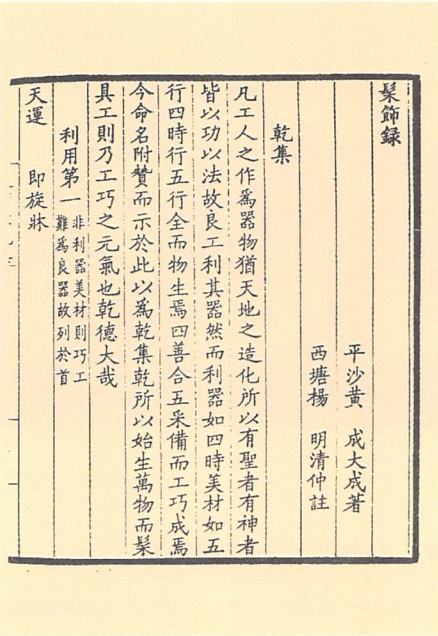 髹飾録
平沙黃　成大成著
西塘楊　明清仲註
乾集
凡工人之作爲器物猶天地之造化所以有聖者有神者
皆以功以法故良工利其器然而利器如四時美材如五
行四時行五行全而物生焉四善合五采備而工巧成焉
今命名附贊而示於此以爲乾集乾所以始生萬物而髹
具工則乃工巧之元氣也乾德大哉
利用第一 非利器美材則巧工
難爲良器故列於首
天運　即旋牀